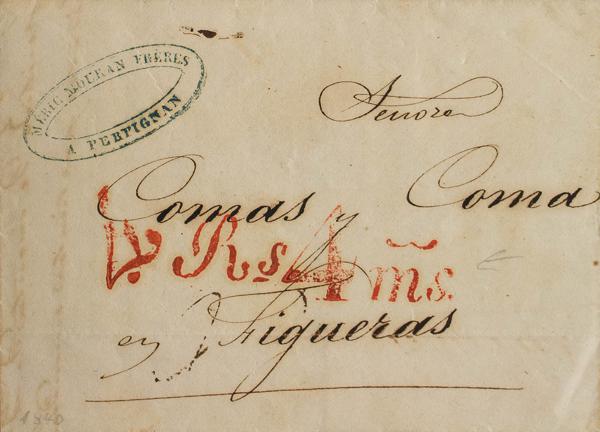 MÉRIC MOURAN FRÈRES
A PERPIGNAN
Señores
Comas y Coma
Rs 4 ms.
en Figueras
1840